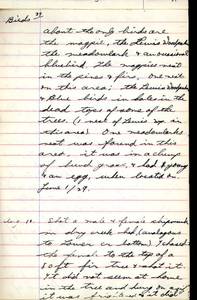 Birds 29
about the only birds are
the magpie, the Lewis Woodpecker
the meadowlark & occasional
bluebird. The magpies nest
in the pines & firs. One nest
on this area; the Lewis Woodpecker
& Blue birds in holes in the
dead tops of some of the
trees. (1 nest of Lewis Wp in
this area) One meadowlarks
nest was found in this
area. it was in a clump
of bunch grass, & had 1 young
& an egg, when located on
June 1/29.
Shot a male & female chipmunk
in dry creek bed. (analogous
to Tower or bottom) I chased
the female to the top of a
soft fir tree & shot it.
It did not seem at home
in the tree and hung on as if
it was